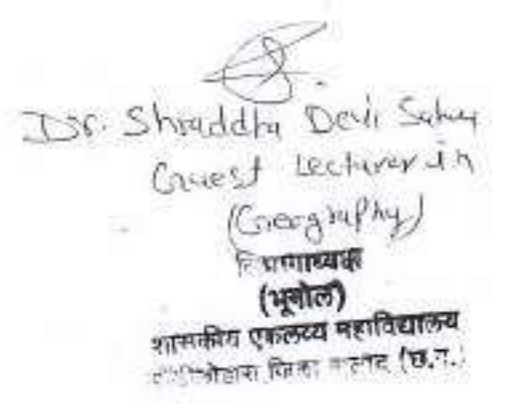 Dr. Shraddha Devi Sahu
Guest Lecturer in
(Geography)
विभागाध्यक्ष
(भूगोल)
शासकीय एकलव्य महाविद्यालय
जिला (छ.ग.)